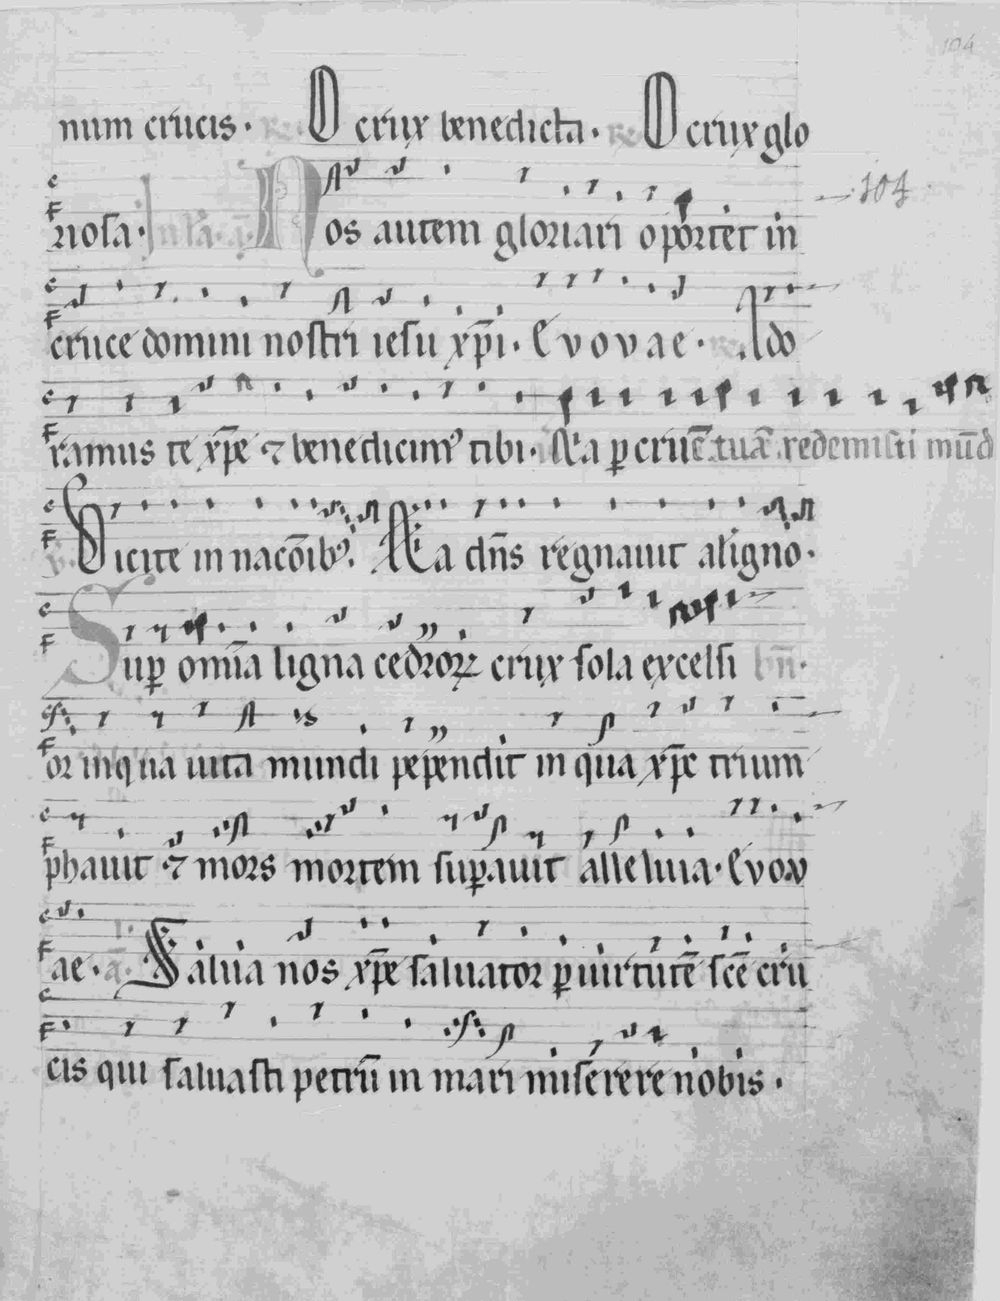 104
num crucis · R. O crux benedicta · R. O crux glo
104
riosa · In la. a. Nos autem gloriari oportet in
cruce domini nostri iesu xp̄i · Evovae · Ado
ramus te xp̄e ⁊ benedicim᾽ tibi · Q̄a ꝑ cruc̄e tuā redemisti mūd
Dicite in naciōib᾽. Q̄a dn̄s regnauit a ligno ·
Suꝑ om̄ia ligna cedroꝝ crux sola excelsi
or in qua uita mundi pependit in qua xp̄c trium
phauit ⁊ mors mortem suꝑauit alleluia · Evov
ae · a. Salua nos xp̄e saluator ꝑ uirtutē sc̄e cru
cis qui saluasti petrū in mari miserere nobis ·